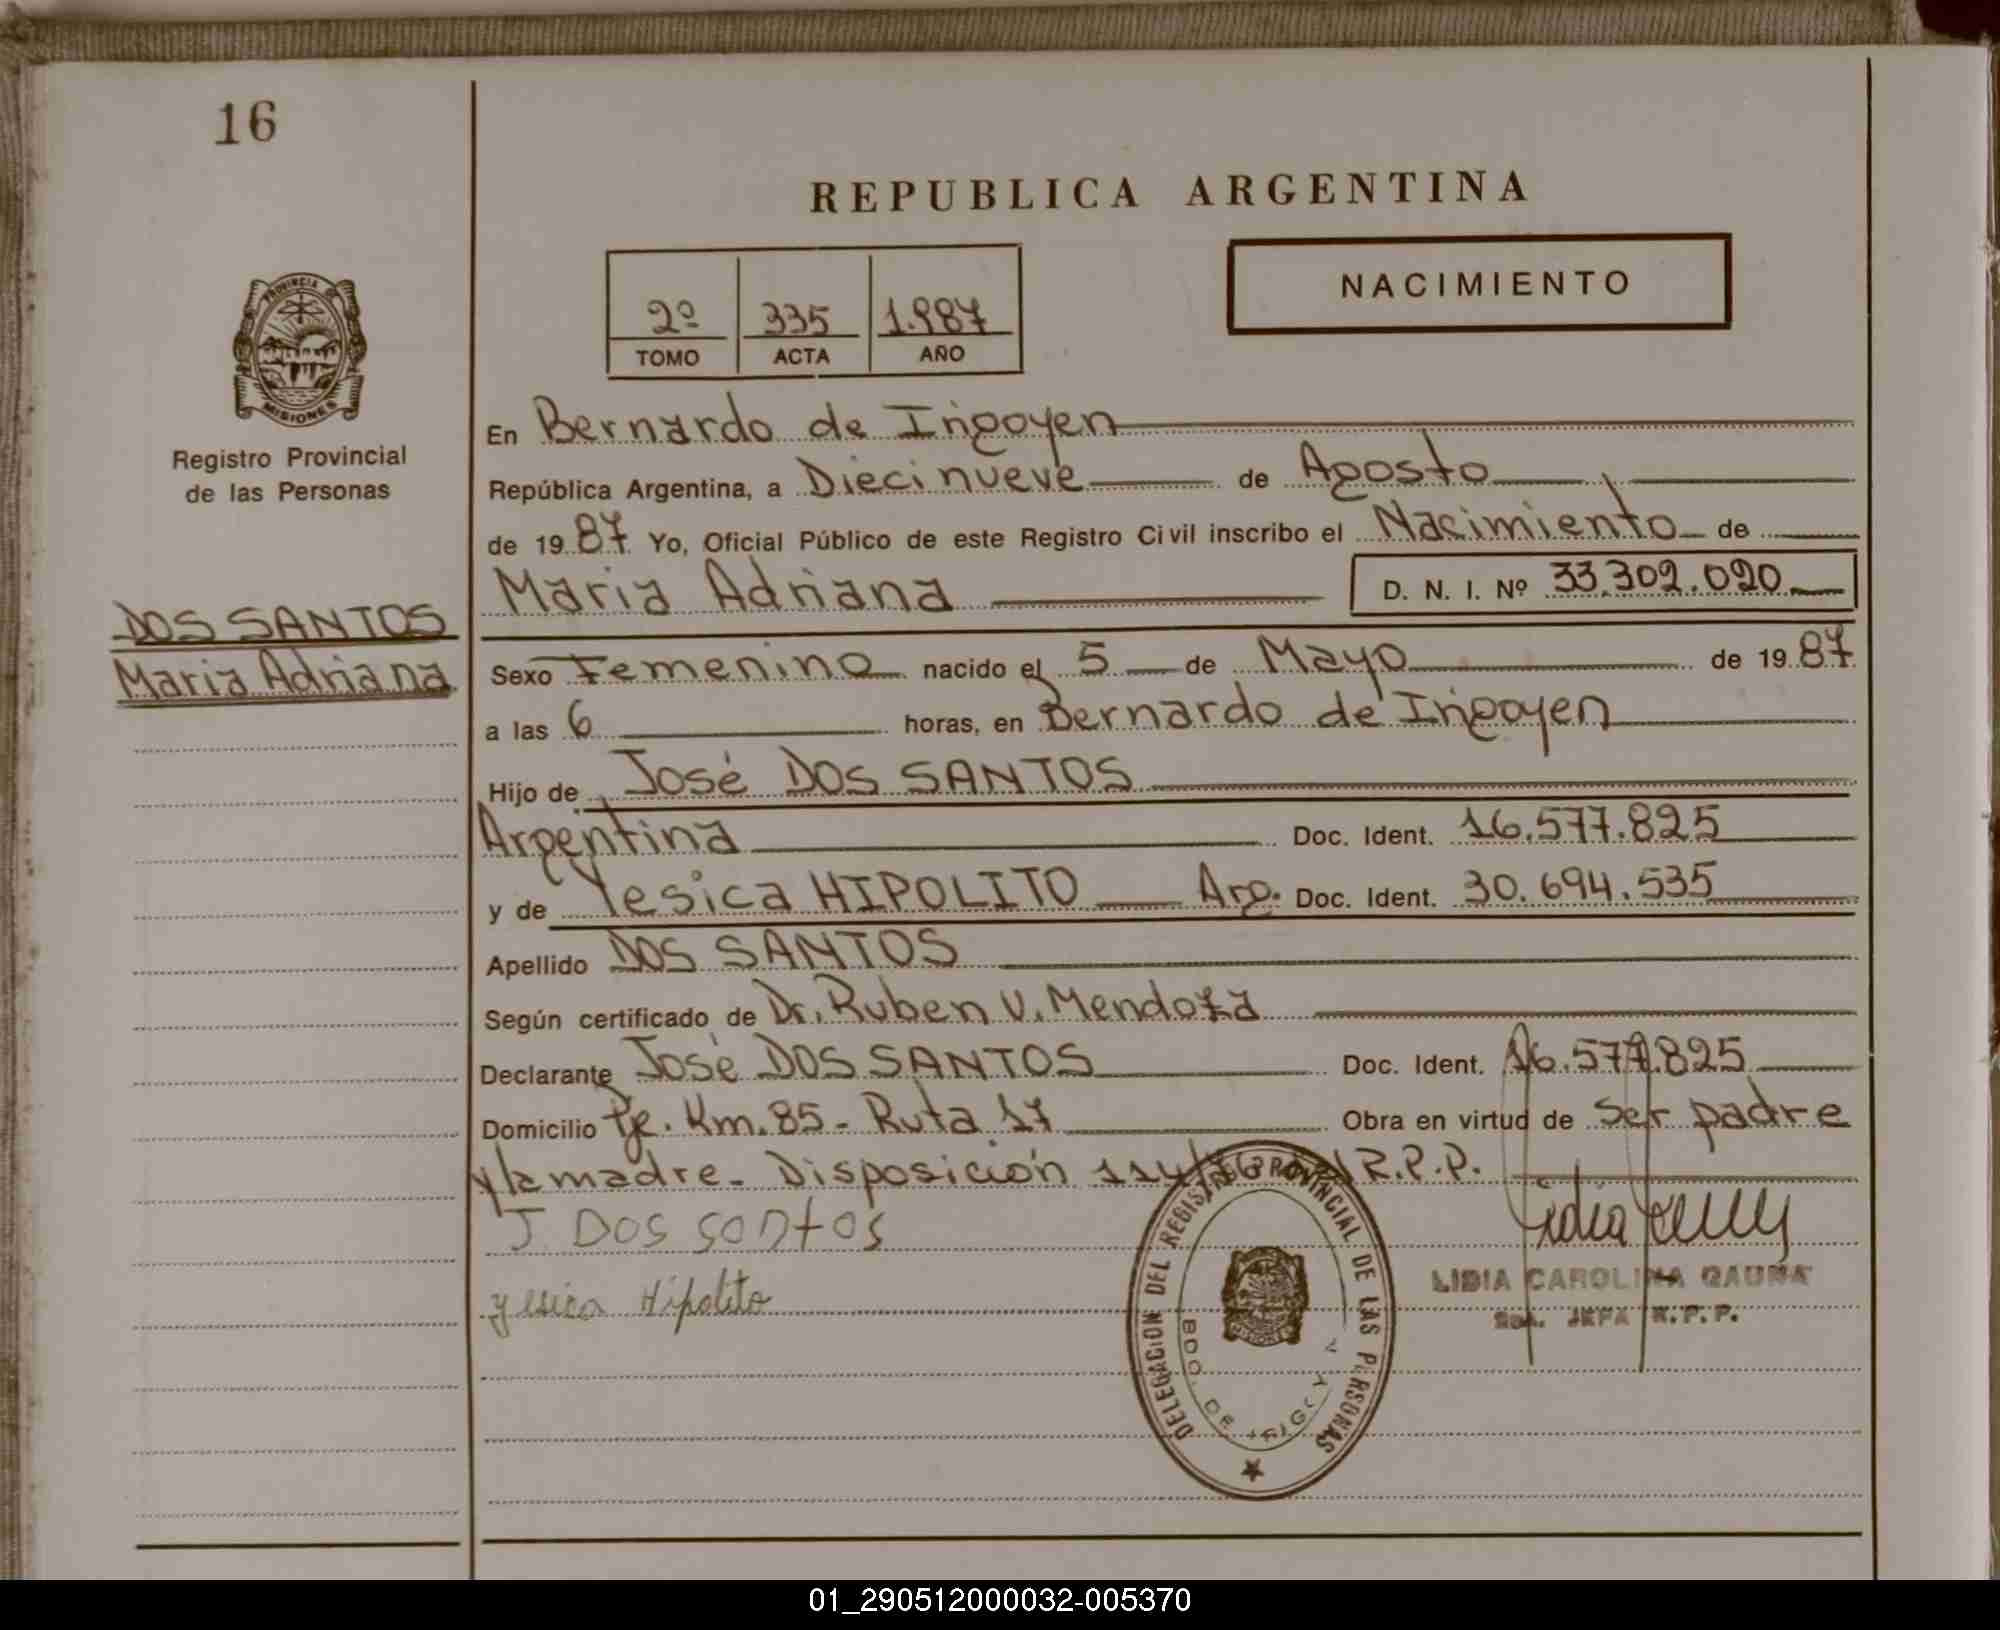 16
REPUBLICA ARGENTINA
NACIMIENTO
2º 335 1.987
TOMO ACTA AÑO
PROVINCIA DE
MISIONES
Registro Provincial
de las Personas
DOS SANTOS
Maria Adriana
En Bernardo de Irigoyen
República Argentina, a Diecinueve de Agosto
de 1987 Yo, Oficial Público de este Registro Civil inscribo el Nacimiento de
Maria Adriana D. N. I. Nº 33.302.020
Sexo Femenino nacido el 5 de Mayo de 1987
a las 6 horas, en Bernardo de Irigoyen
Hijo de José DOS SANTOS
Argentina Doc. Ident. 16.577.825
y de Yesica HIPOLITO Arg. Doc. Ident. 30.694.535
Apellido DOS SANTOS
Según certificado de Dr. Ruben V. Mendoza
Declarante José DOS SANTOS Doc. Ident. 16.577.825
Domicilio Pje. Km. 85 - Ruta 17 Obra en virtud de ser padre
y la madre - Disposición R.P.P.
J. DOS santos
yesica Hipolito
DELEGACION DEL REGISTRO PROVINCIAL DE LAS PERSONAS
BDO. DE IRIGOYEN
LIDIA CAROLINA GAUNA
JEFA R.P.P.
01_290512000032-005370